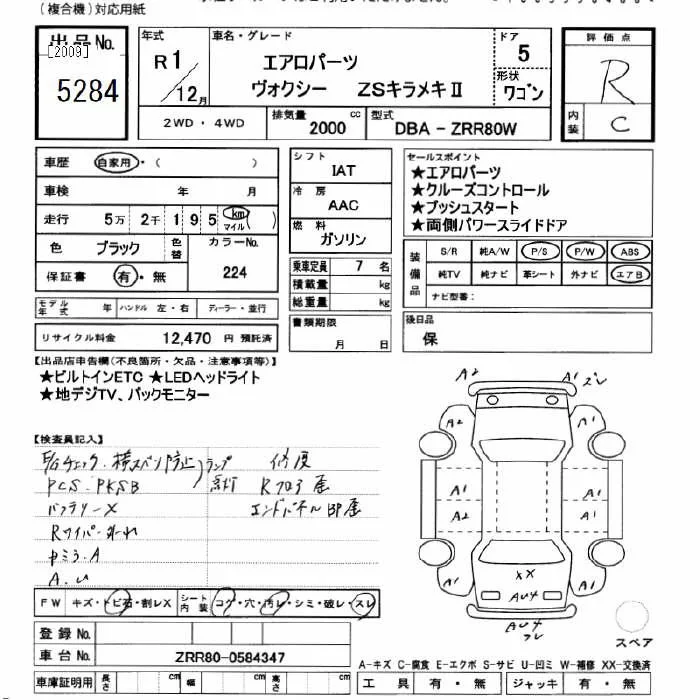 (複合機)対応用紙
出品No.
[2009]
5284
年式
R1/12月
車名・グレード
エアロパーツ
ヴォクシー ZSキラメキⅡ
ドア
5
形状
ワゴン
評価点
R
内装
C
2WD・4WD
排気量 2000 cc
型式 DBA-ZRR80W
車歴 自家用・( )
車検 年 月
走行 5万 2千 1 9 5 km マイル( )
色 ブラック 色替
カラーNo. 224
保証書 有・無
モデル年式 年 ハンドル 左・右 ディーラー・並行
リサイクル料金 12,470 円 預託済
シフト
IAT
冷房
AAC
燃料
ガソリン
乗車定員 7 名
積載量 kg
総重量 kg
書類期限
月 日
セールスポイント
★エアロパーツ
★クルーズコントロール
★プッシュスタート
★両側パワースライドドア
装備品
S/R 純A/W P/S P/W ABS
純TV 純ナビ 革シート 外ナビ エアB
ナビ型番:
後日品
保
【出品店申告欄(不良箇所・欠品・注意事項等)】
★ビルトインETC ★LEDヘッドライト
★地デジTV、バックモニター
【検査員記入】
E/Gチェック・横スベリ防止
PCS・PKSB
ランプ点灯
バッテリーX
Rワイパー外れ
中ミラ・A
A・U
修復
Rフロア歪
エンドパネルBP歪
FW キズ・トビ石・割レX シート内装 コゲ・穴・汚レ・シミ・破レ・スレ
登録No.
車台No. ZRR80-0584347
車庫証明用 長さ cm 幅 cm 高さ cm
A2 A1
A2 A1
A1 A1
A2 A1
A1 A1
XX
AU4
AU4
スペア
A-キズ C-腐食 E-エクボ S-サビ U-凹ミ W-補修 XX-交換済
工具 有・無 ジャッキ 有・無